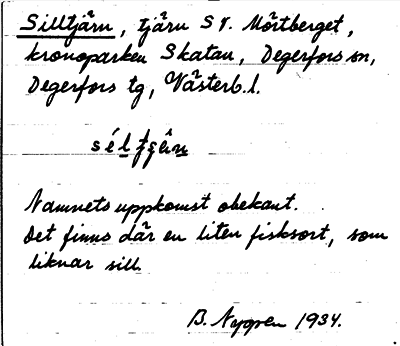 Silltjärn, tjärn S V. Mörtberget,
kronoparken Skatan, Degerfors sn,
Degerfors tg, Västerb. l.
Namnets uppkomst obekant.
Det finns där en liten fisksort, som
liknar sill.
B. Nyppen 1934.